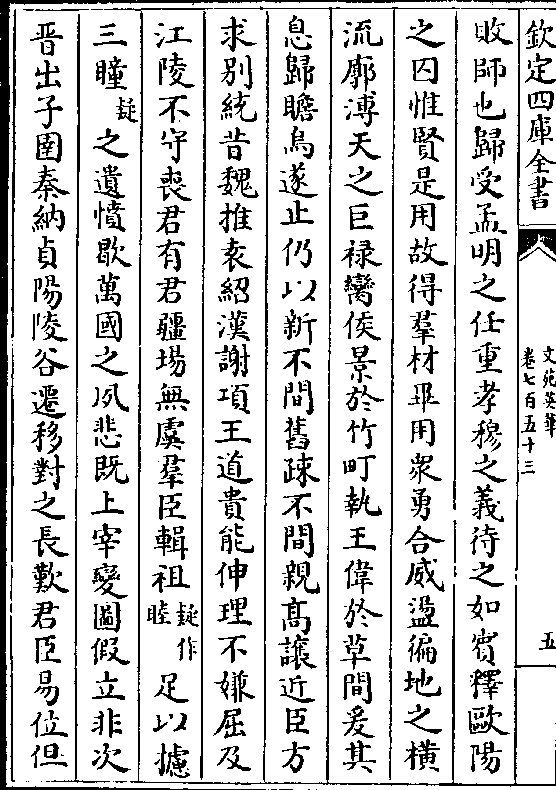 欽定四庫全書
文苑英華
卷七百五十三
五
敗師也歸受孟明之任重孝穆之義待之如賓釋歐陽
之囚惟賢是用故得羣材畢用衆勇合威盪徧地之橫
流廓溥天之巨祲臠侯景於竹町執王偉於草間爰其
息歸瞻烏遂止仍以新不間舊疎不間親高讓近臣方
求别統昔魏推袁紹漢謝項王道貴能伸理不嫌屈及
江陵不守喪君有君疆場無虞羣臣輯祖疑作睦足以攄
三瞳疑之遺憤歇萬國之夙悲既上宰變圖假立非次
晋出子圉秦納貞陽陵谷遷移對之長歎君臣易位但